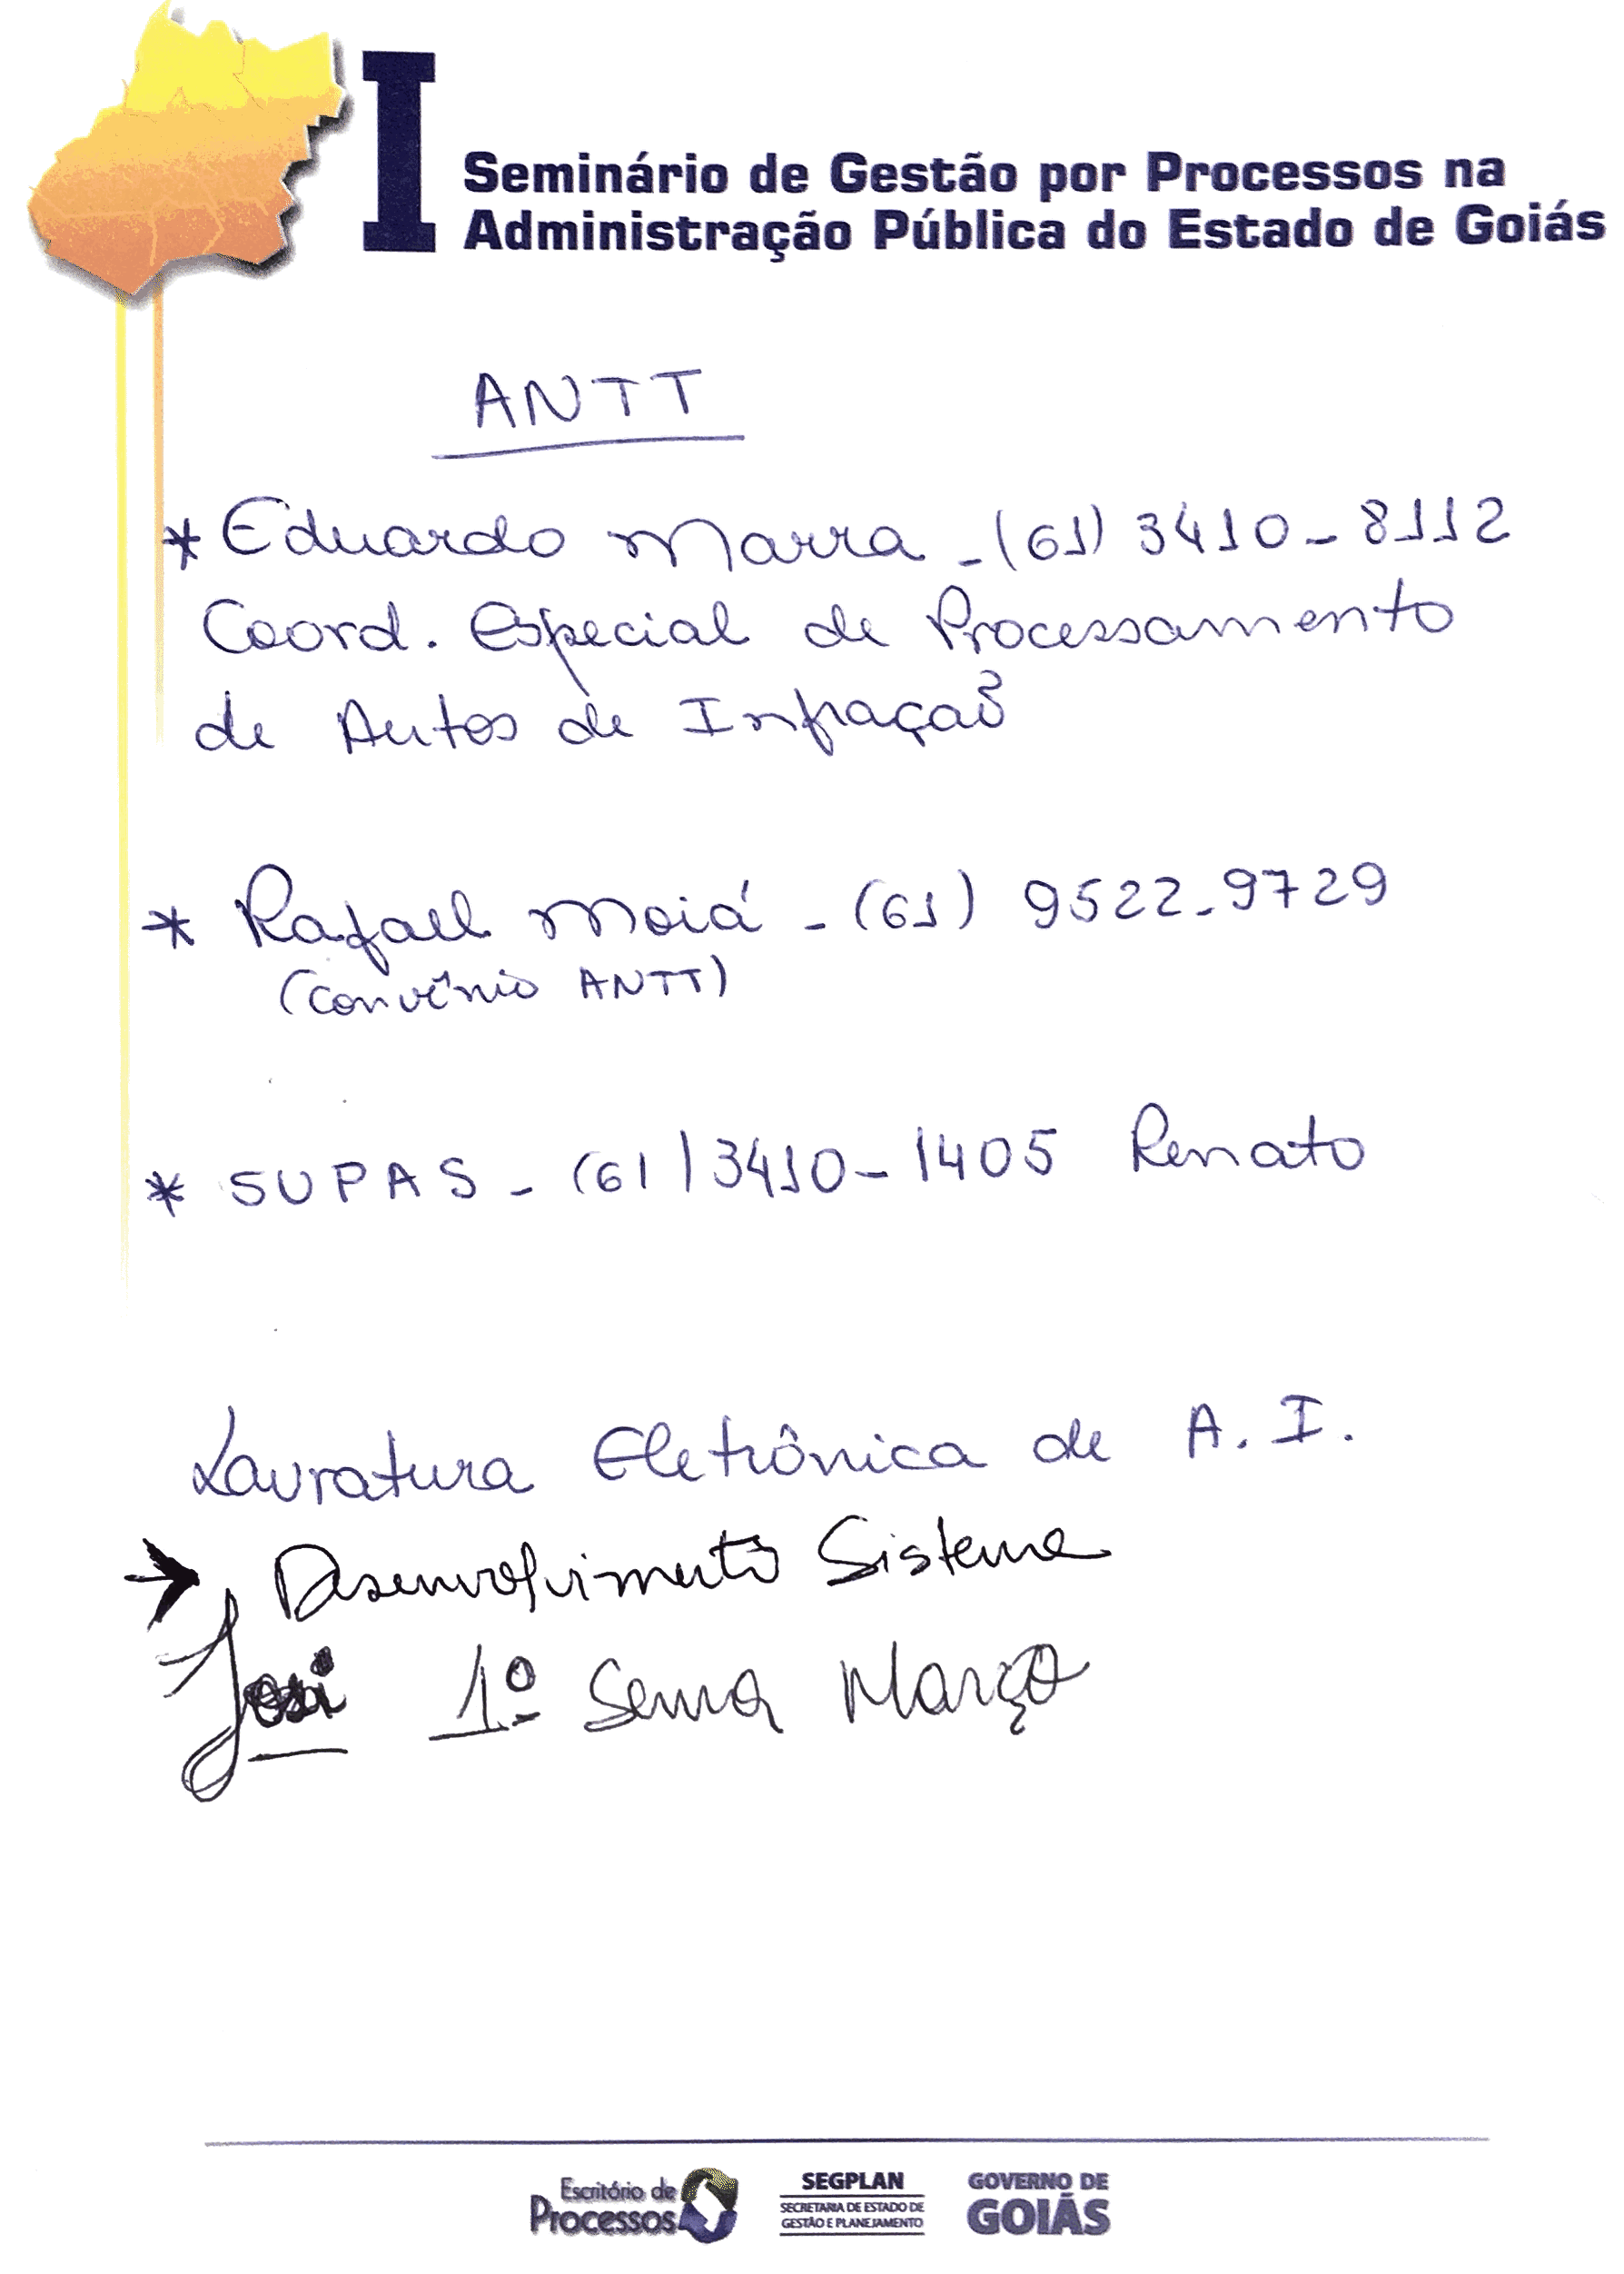 I
Seminário de Gestão por Processos na
Administração Pública do Estado de Goiás
ANTT
* Eduardo Marra - (61) 3410-8112
Coord. Especial de Processamento
de Autos de Infração
* Rafael Moiá - (61) 9522-9729
(Convênio ANTT)
* SUPAS - (61) 3410-1405 Renato
Lavratura Eletrônica de A.I.
→ Desenvolvimento Sistema
Josi 1º Sema Março
Escritório de
Processos
SEGPLAN
SECRETARIA DE ESTADO DE
GESTÃO E PLANEJAMENTO
GOVERNO DE
GOIÁS